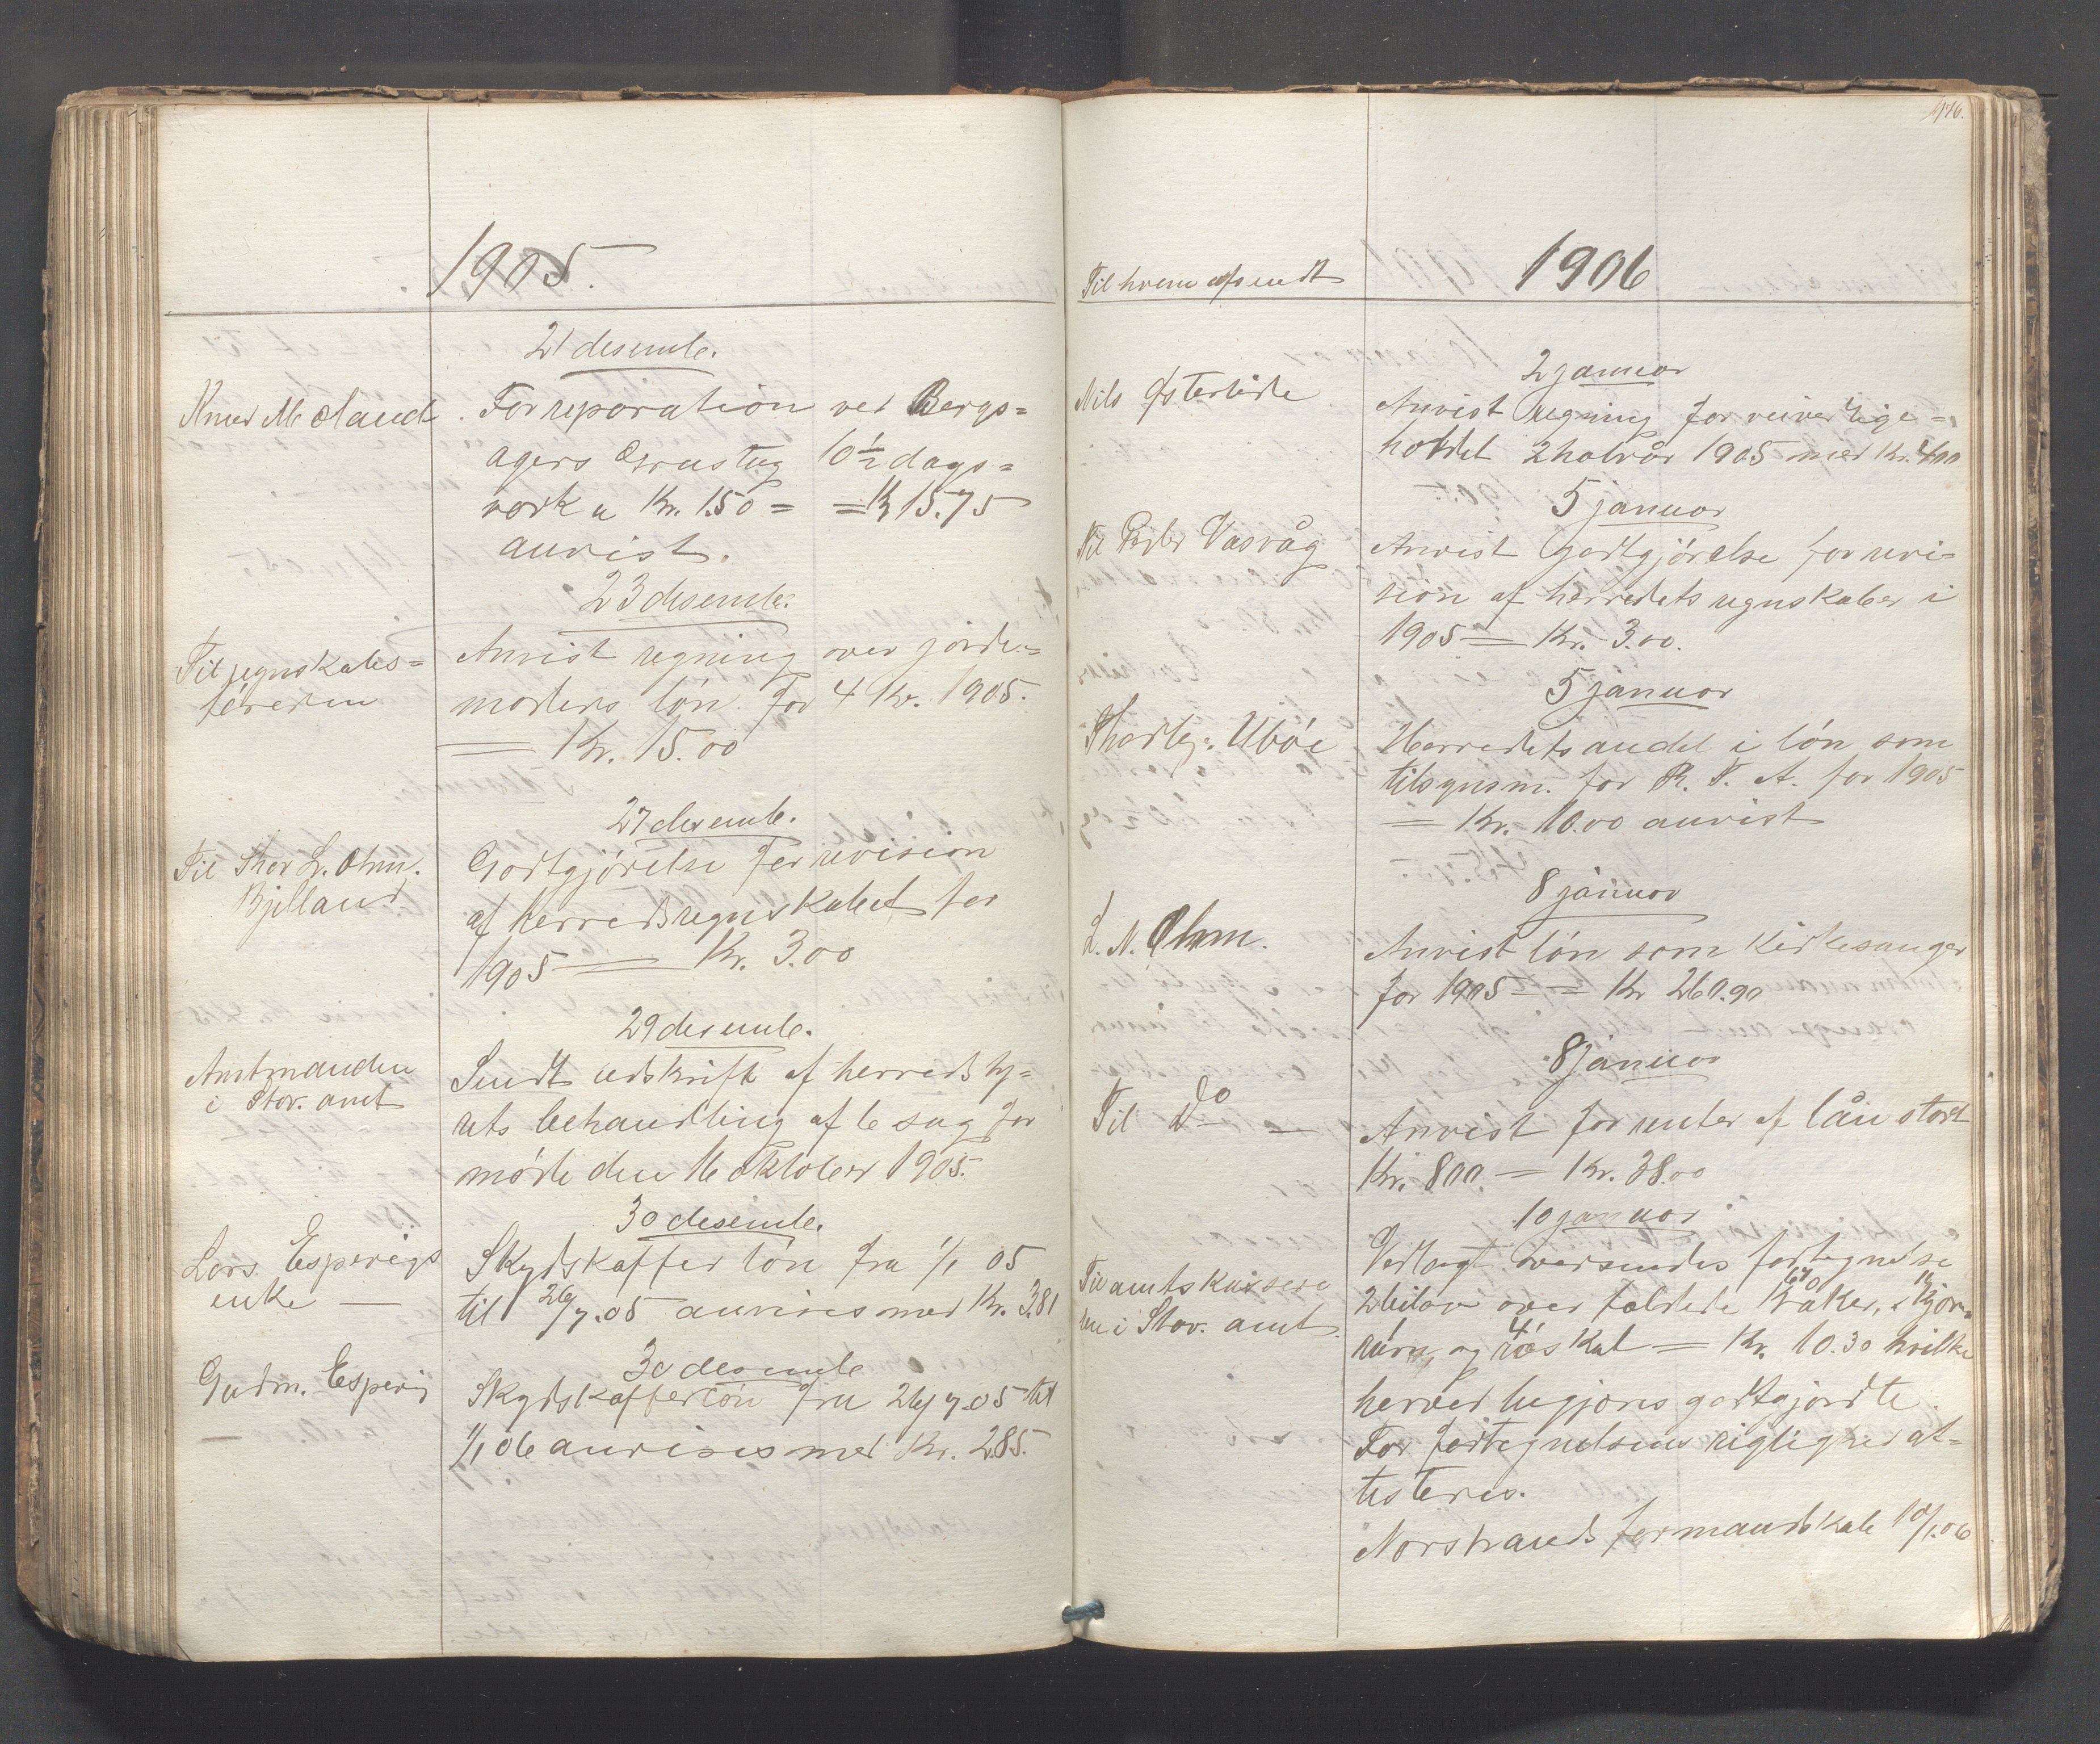 1905.
21 desemb.
Knud M Øland
For reparation ved Bergs=
agers Grustag 10½ dags=
verk a Kr. 1.50 = = Kr 15.75
anvist.
23 desemb.
Til regnskabs=
føreren
Anvist regning over jorde=
moders løn for 4 Kv. 1905.
= Kr. 15.00
27 desemb.
Til Thor L. Ohm.
Bjelland
Godtgjørelse for revision
af herredsregnskabet for
1905 = Kr. 3.00
29 desemb.
Amtmanden
i Stav. amt
Sendt udskrift af herredsty=
rets behandling af 6 sag for
møde den 16 oktober 1905.
30 desemb.
Lars Espevigs
enke —
Skydskaffer løn fra 1/1 05
til 26/7.05 anvises med Kr. 3.81
30 desemb
Gudm. Espevig
Skydskafferløn fra 26/7.05 til
1/1 06 anvises med Kr. 2.85.
176.
Til hvem afsendt
1906
2 januar
Nils Østerhede
Anvist regning for veivedlige=
holdet 2 halvår 1905 med Kr. 4.00
5 januar
Til Vasvåg
Anvist godtgjørelse for revi=
sion af herredets regnskaber i
1905 = Kr. 3.00.
5 januar
Thorbj. Ubøe
Herredets andel i løn som
tilsynsm. for R. F. A. for 1905
= Kr. 10.00 anvist
8 januar
L. N. Ohm.
Anvist løn som kirkesanger
for 1905 = Kr 260.90
8 januar
Til Do —
Anvist for renter af lån stort
Kr. 800 — Kr. 38.00
10 januar
Til amtskassere
ren i Stav. amt.
Vedlagt oversendes fortegnelse
2 bilav over fældede kråker,
og 4 røskat = Kr. 10.30 hvilke
herved begjæres godtgjordte.
For fortegnelsens rigtighed at=
testeres.
Norstrands formandskab 10/1.06